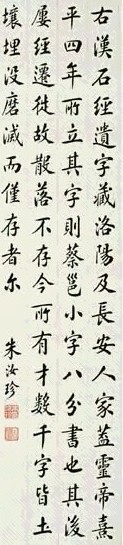 右漢石經遺字藏洛陽及長安人家蓋靈帝熹
平四年所立其字則蔡邕小字八分書也其後
屢經遷徙故散落不存今所有才數千字皆土
壤埋没磨滅而僅存者尔
朱汝珍